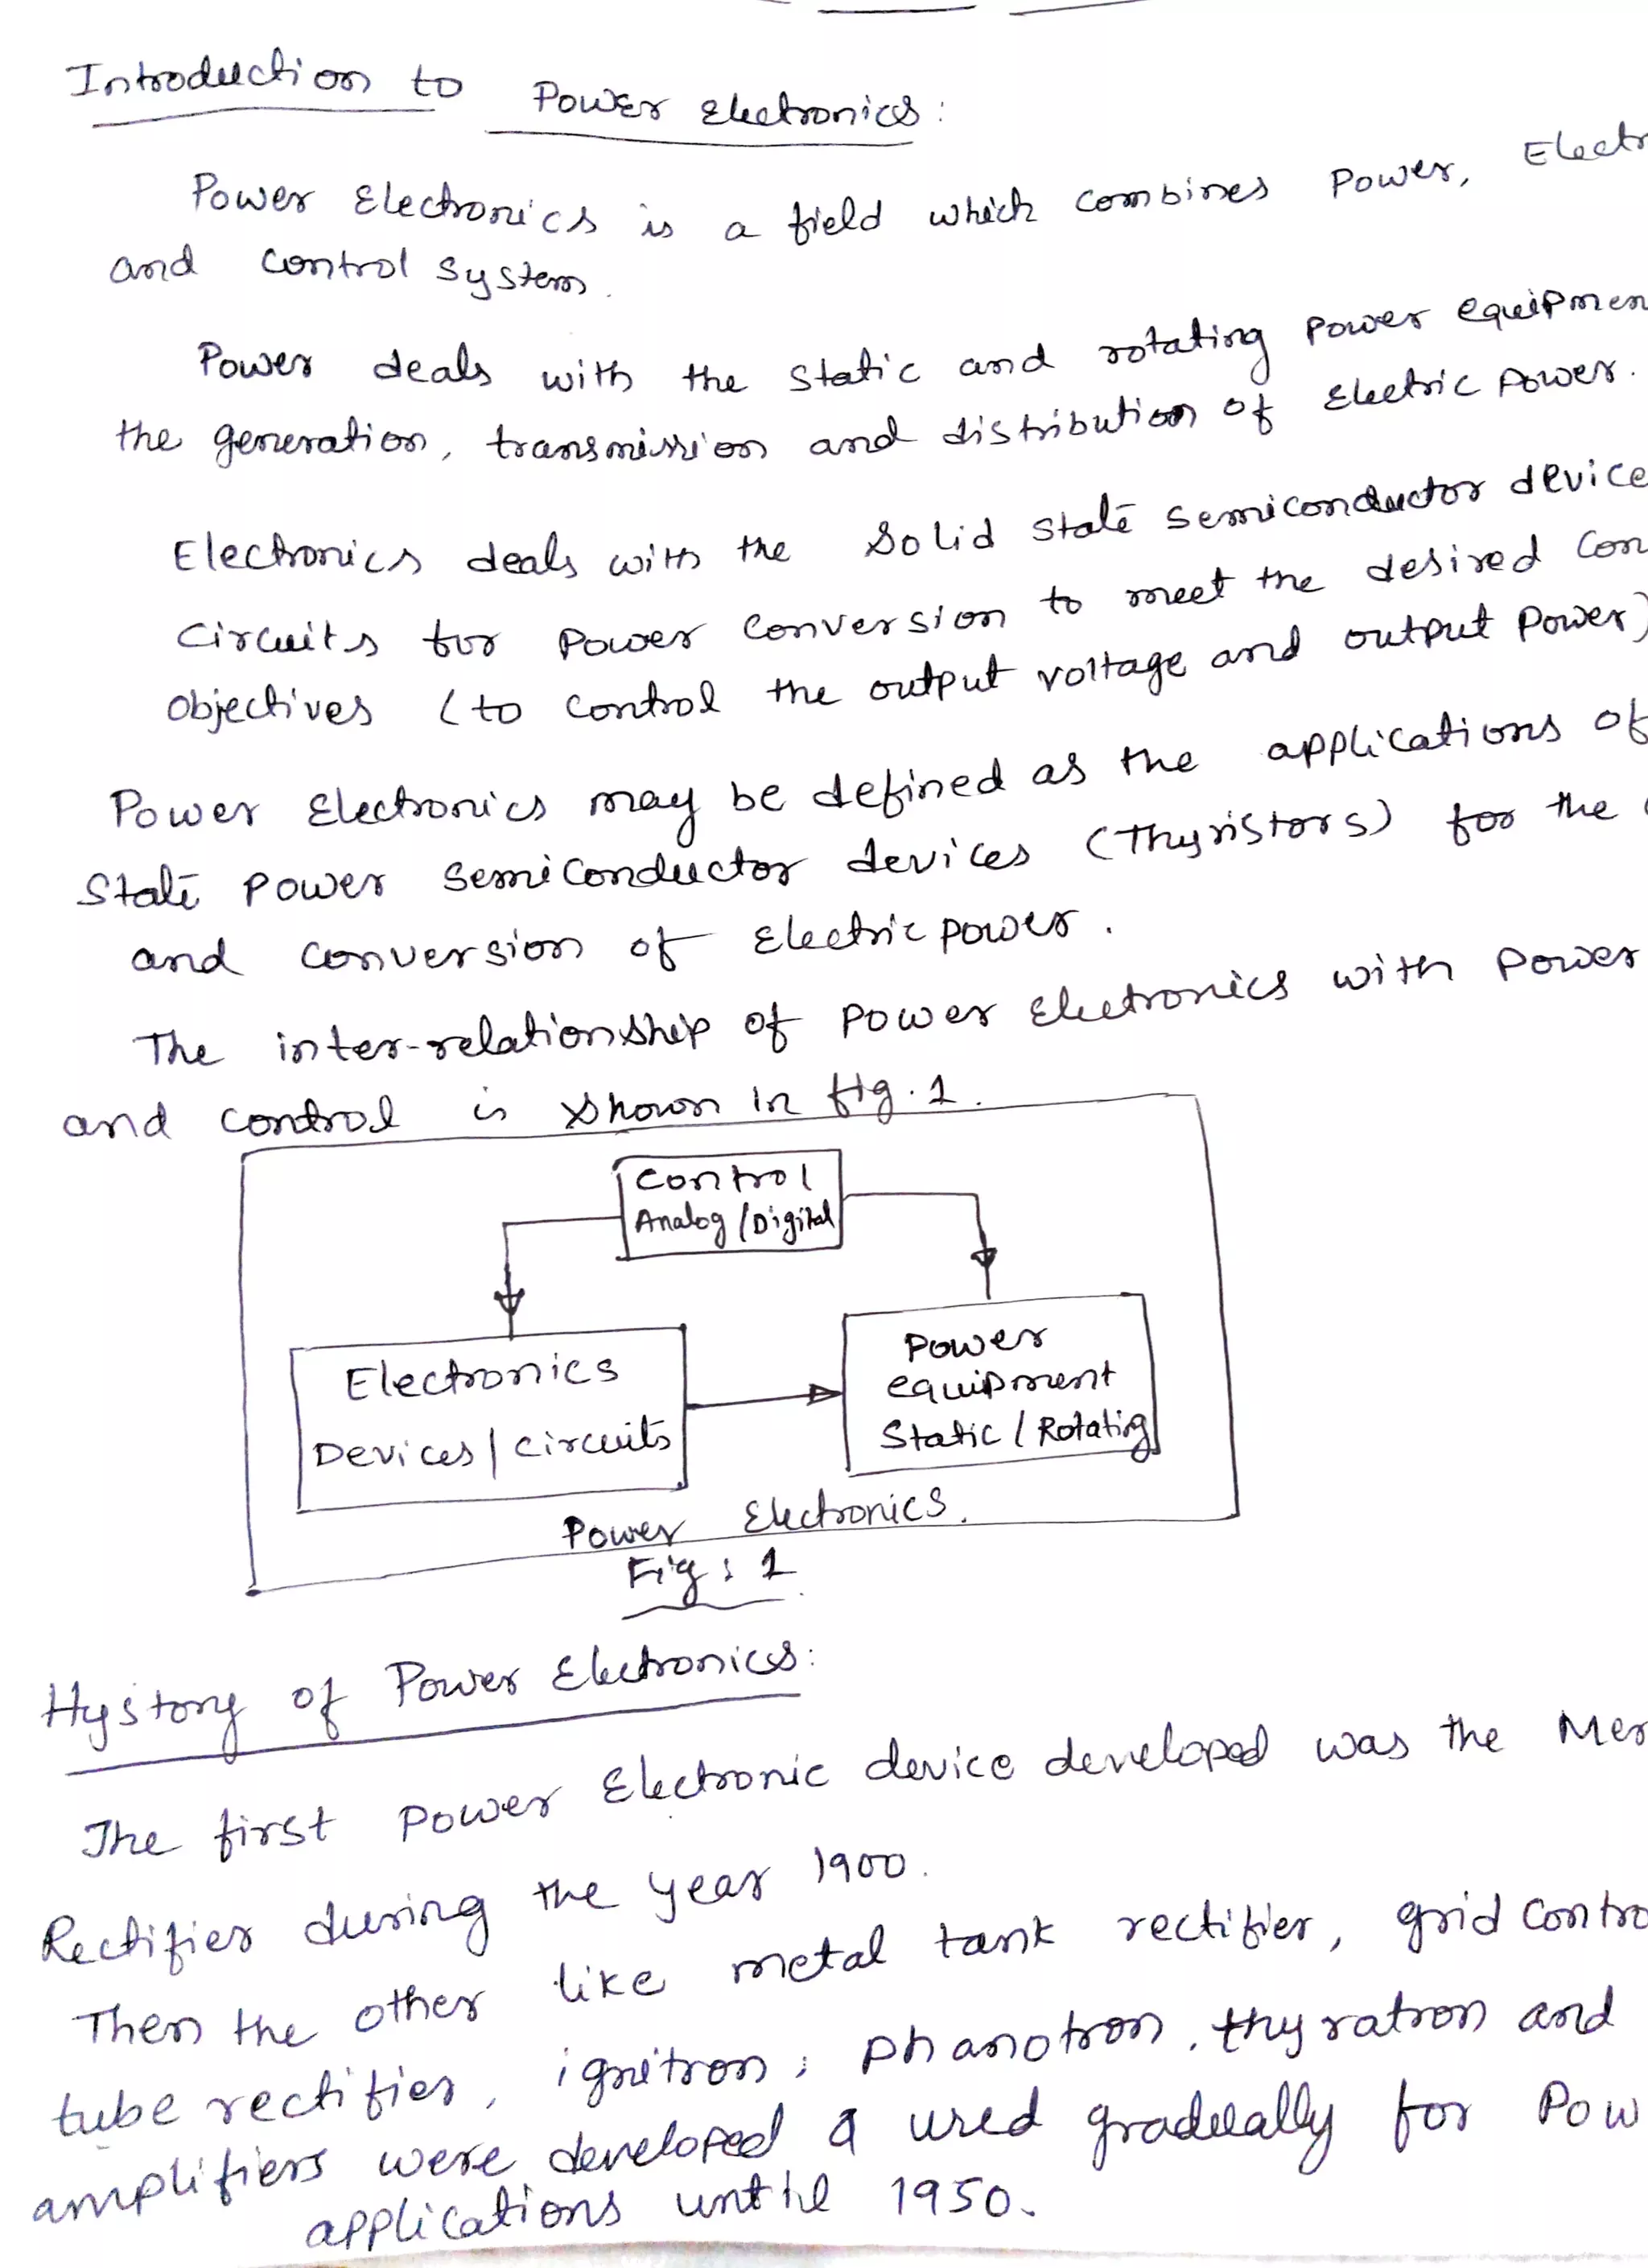 Introduction to Power Electronics:
Power Electronics is a field which combines Power, Electr
and control system.
Power deals with the static and rotating power equipmen
the generation, transmission and distribution of Electric Power.
Electronics deals with the Solid state semiconductor device
circuits for Power conversion to meet the desired con
objectives (to control the output voltage and output Power)
Power Electronics may be defined as the applications of
State Power semiconductor devices (Thyristors) for the
and conversion of Electric power.
The inter-relationship of Power Electronics with Power
and control is shown in fig.1.
Control
Analog/Digital
Electronics
Devices/circuits
Power
equipment
Static/Rotating
Power Electronics.
Fig: 1
Hystory of Power Electronics:
The first Power Electronic device developed was the Mer
Rectifier during the year 1900.
Then the other like metal tank rectifier, grid contro
tube rectifier, ignitron, phanotron, thyratron and
amplifiers were developed & used gradually for Pow
applications until 1950.